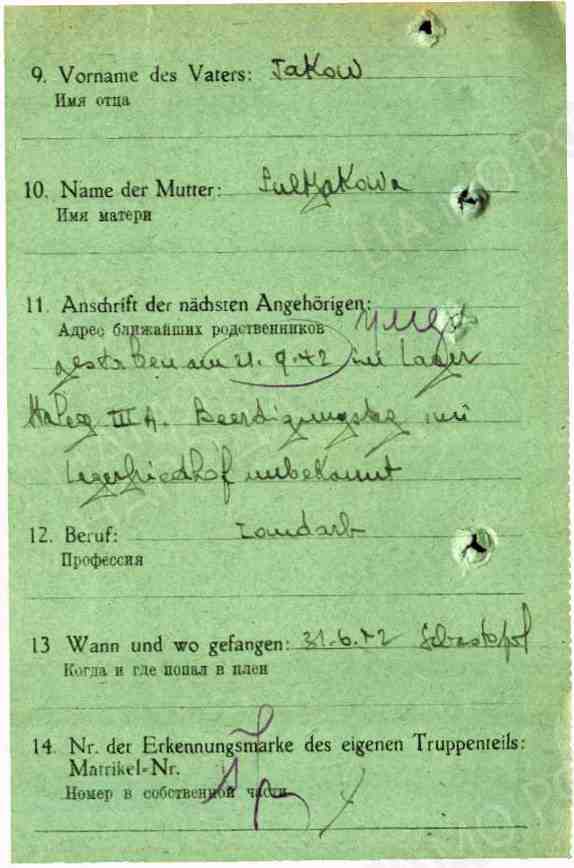 9. Vorname des Vaters: Jakow
Имя отца
10. Name der Mutter:
Имя матери
11. Anschrift der nächsten Angehörigen:
Адрес ближайших родственников
gestorben am 21.9.42 im Lager
III A. Beerdigungstag im
Lagerfriedhof unbekannt
12. Beruf: Landarb
Профессия
13 Wann und wo gefangen: 31.6.42 Sebastopol
Когда и где попал в плен
14. Nr. der Erkennungsmarke des eigenen Truppenteils:
Matrikel-Nr.
Номер в собственной части